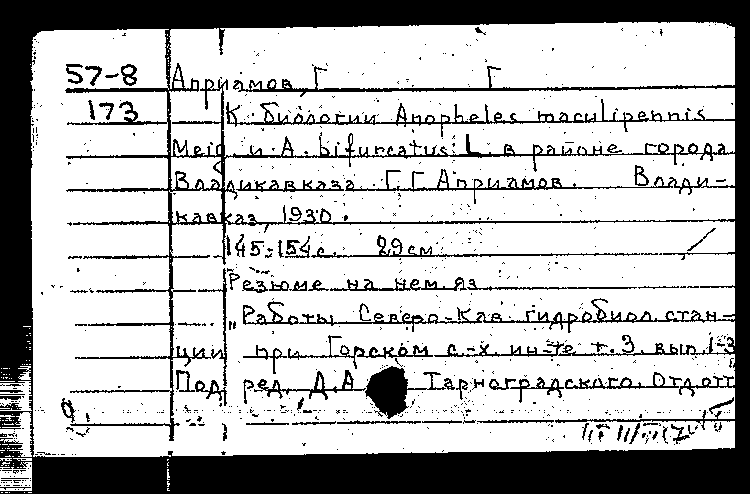 57-8 Априамов, Г Г
173 К биологии Anopheles maculipennis
Meig и A. bifurcatus L в районе города
Владикавказа Г.Г Априамов. Влади-
кавказ, 1930.
145-154 с. 29 см
Резюме на нем яз
"Работы Северо-Кав. гидробиол. стан-
ции при Горском с.-х. ин-те т. 3. вып. 1-3
Под ред. Д.А Тарноградского. Отд отт